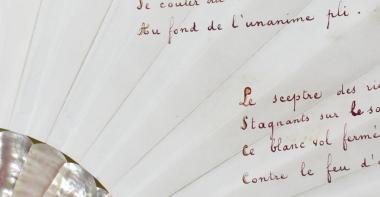 Se couler du
Au fond de l'unanime pli.
Le sceptre des
Stagnants sur le
Ce blanc vol fermé
Contre le feu d'